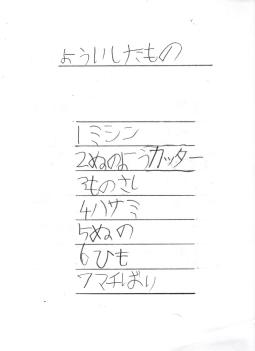 よういしたもの
1ミシン
2ぬのようカッター
3ものさし
4ハサミ
5ぬの
6ひも
7マチばり